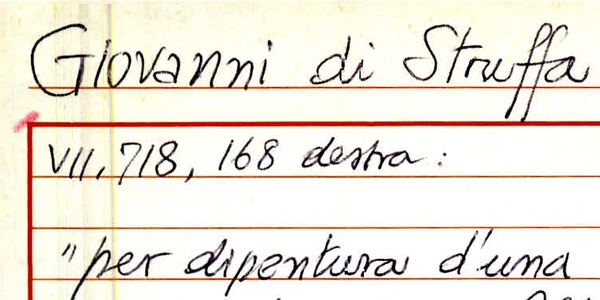 Giovanni di Struffa
VII, 718, 168 destra:
"per dipentura d'una